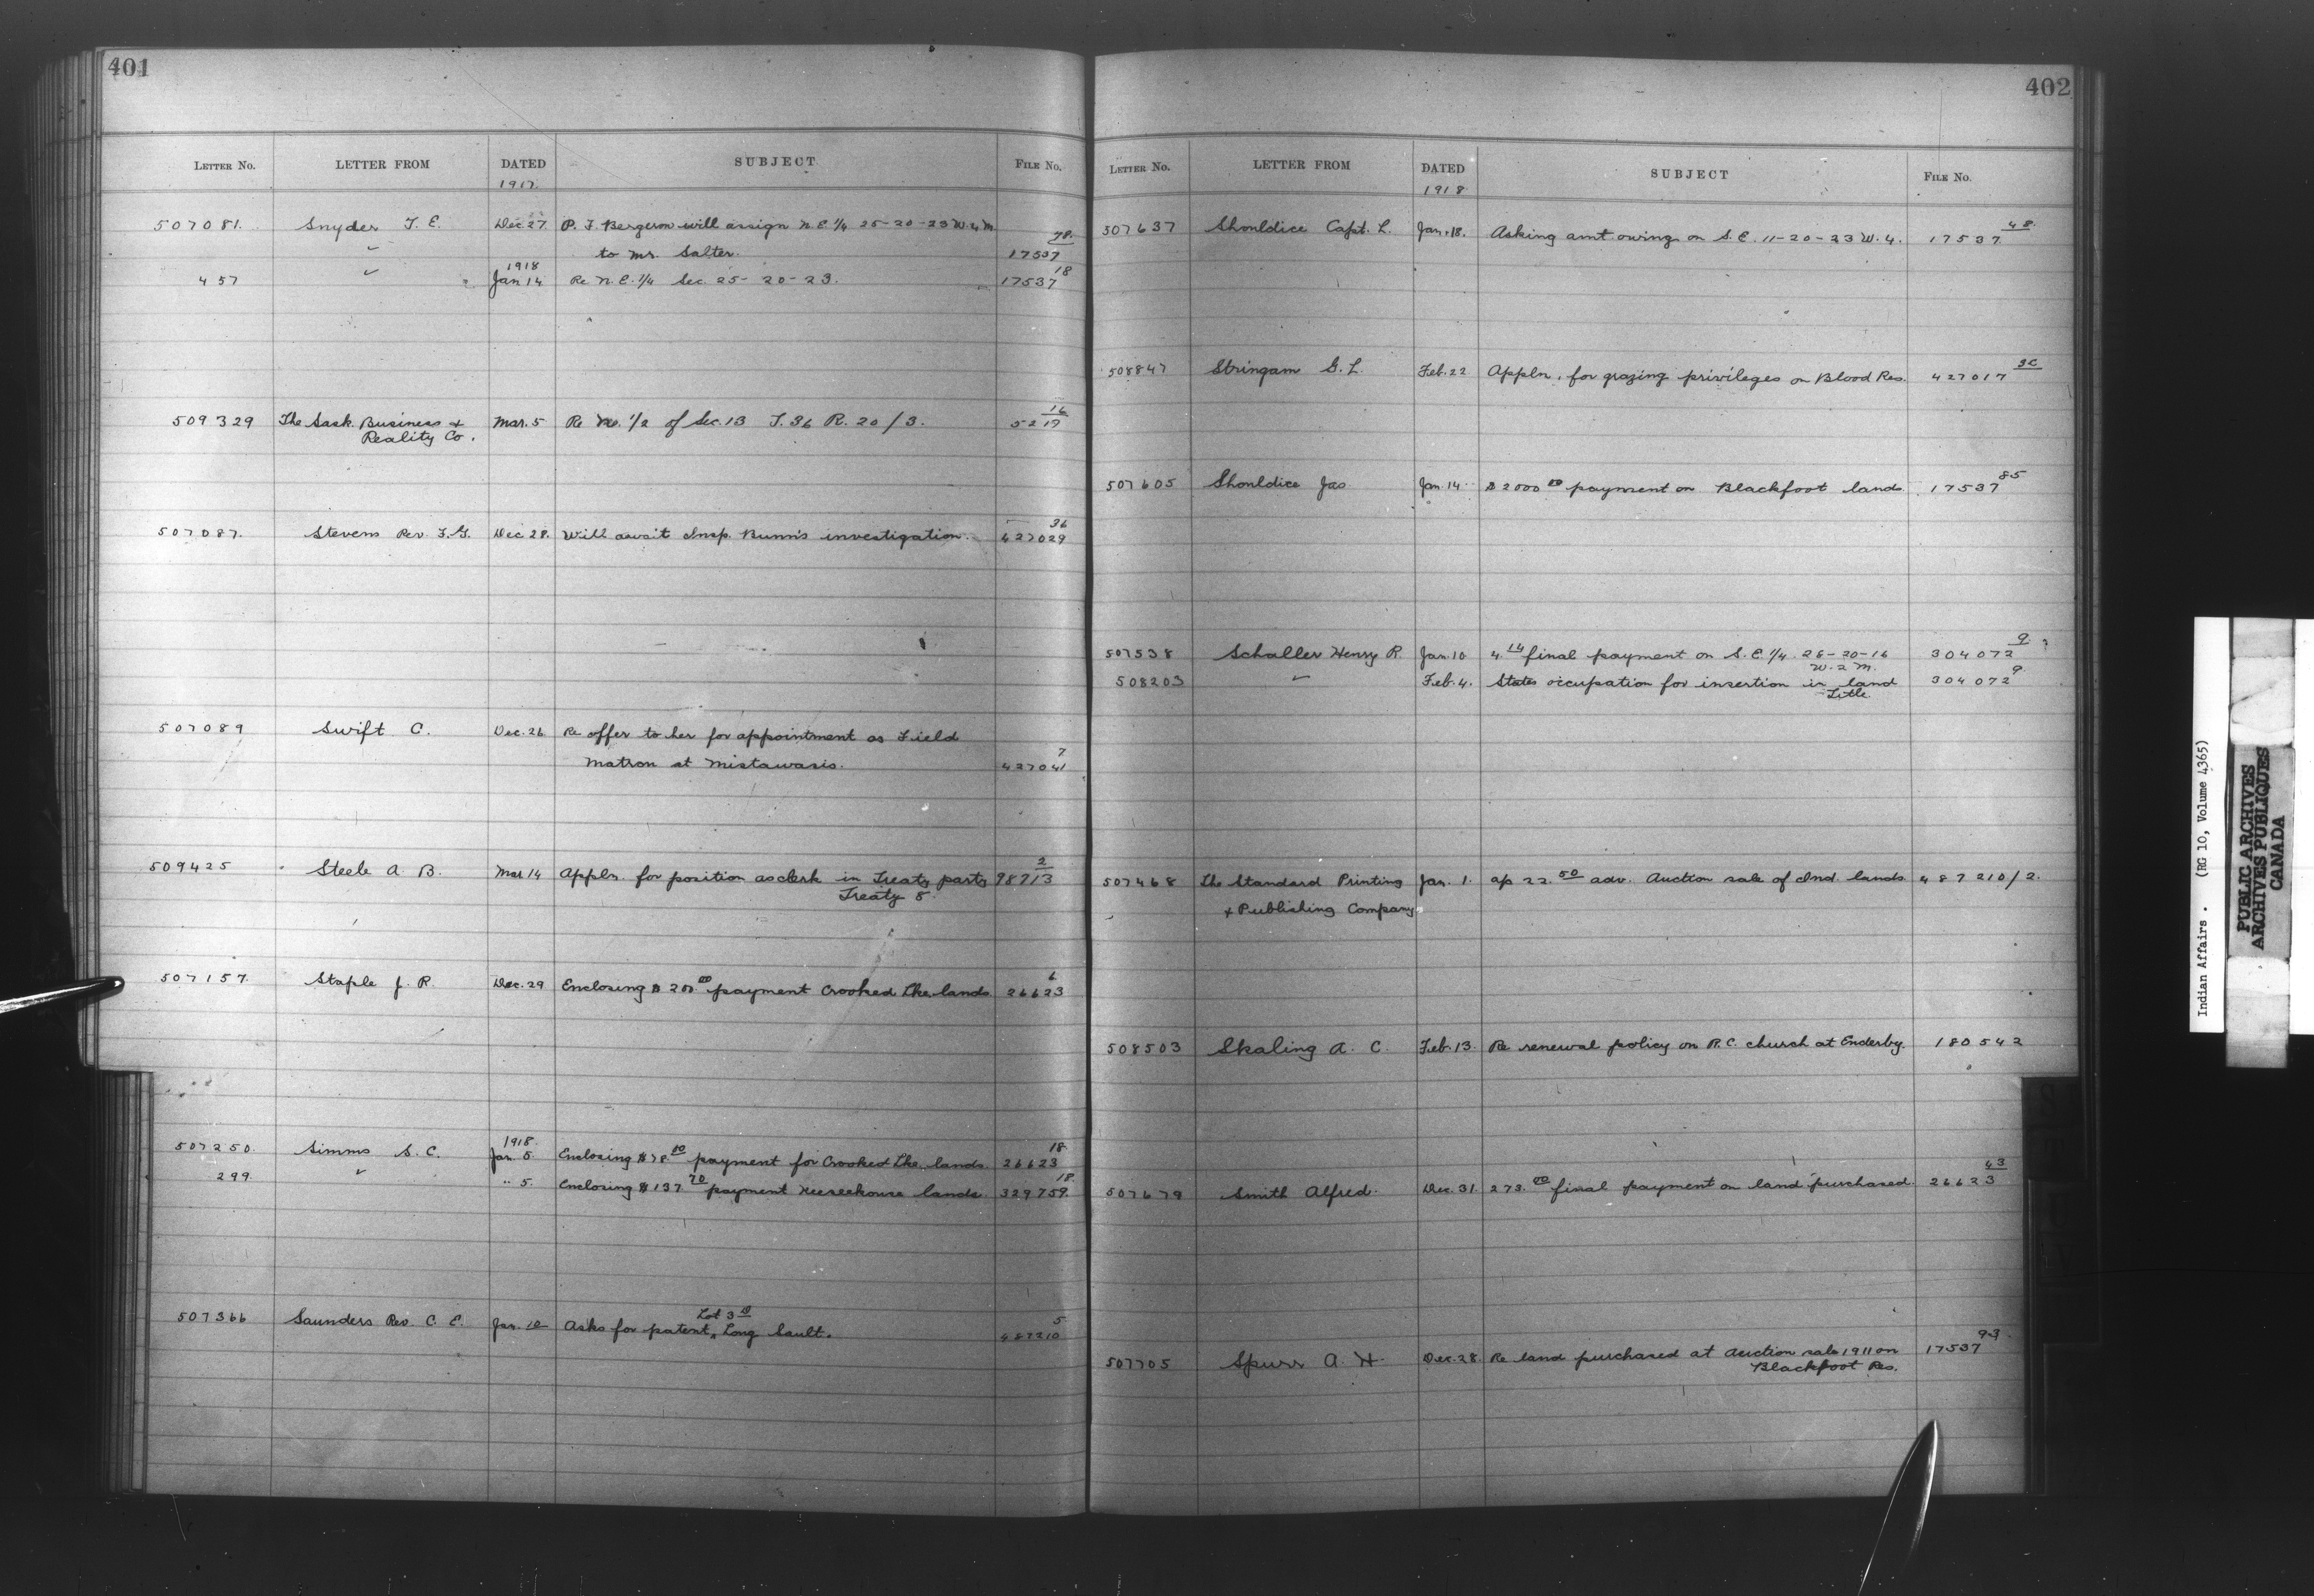 401
LETTER No. LETTER FROM DATED SUBJECT FILE No.
1917
507081. Snyder T. E. Dec. 27 P. J. Bergeron will assign N.E. 1/4 25-20-23 W. 4 M. 78
✓ to Mr. Salter. 17537
1918
457 ✓ Jan 14 Re N.E. 1/4 Sec. 25-20-23. 17537 18
509329 The Sask. Business & Mar. 5 Re 1/2 of Sec. 13 T. 36 R. 20/3. 5217 16
Reality Co.
507087. Stevens Rev. F.G. Dec 28. Will await Insp. Bunn's investigation. 427029 36
507089 Swift C. Dec. 26 Re offer to her for appointment as Field
Matron at Mistawasis. 427041 7
509425 Steele A. B. Mar 14 Appln. for position as clerk in Treaty party 98713 2
Treaty 5.
507157 Staple J. R. Dec. 29 Enclosing $ 200 00 payment Crooked Lke lands 26623 6
1918
507250. Simms S. C. Jan. 5 Enclosing $78. payment for Crooked Lke. lands. 26623 18
299. ✓ " 5. Enclosing $137 70 payment lands. 329759. 18
507366 Saunders Rev. C. E. Jan. 10 Asks for patent, Lot 3 Long Sault. 487210 5
402
LETTER No. LETTER FROM DATED SUBJECT FILE No.
1918
507637 Shouldice Capt. L. Jan. 18. Asking amt owing on S. E. 11-20-23 W. 4. 17537 48
508847 Stringam G. L. Feb. 22 Appln. for grazing privileges on Blood Res. 427017 3C
507605 Shouldice Jas Jan. 14 $ 2000 00 payment on Blackfoot lands 17537 85
507538 Schaller Henry R. Jan. 10 4.14 final payment on S. E. 1/4 26-20-16 304072 9
W. 2 M.
508203 ✓ Feb. 4. States occupation for insertion in land 304072 9
Title
507468 The Standard Printing Jan. 1. ap 22.50 adv. Auction sale of Ind. lands 487210/2.
& Publishing Company
508503 Skaling A. C. Feb. 13. Re renewal policy on R.C. church at Enderby. 180542
507679 Smith Alfred. Dec. 31 273. 00 final payment on land purchased. 26623 43
507705 Spurr A. H. Dec. 28. Re land purchased at Auction sale 1911 on 17537 93
Blackfoot Res.
Indian Affairs. (RG 10, Volume 4365)
PUBLIC ARCHIVES
ARCHIVES PUBLIQUES
CANADA